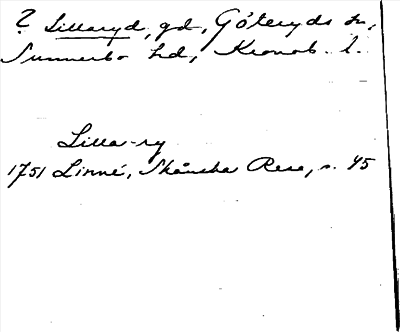 ? Lillaryd, gd, Göteryds sn,
Sunnerbo hd, Kronob. l.
Lilla-ry
1751 Linné, Skånska Resa, s. 45